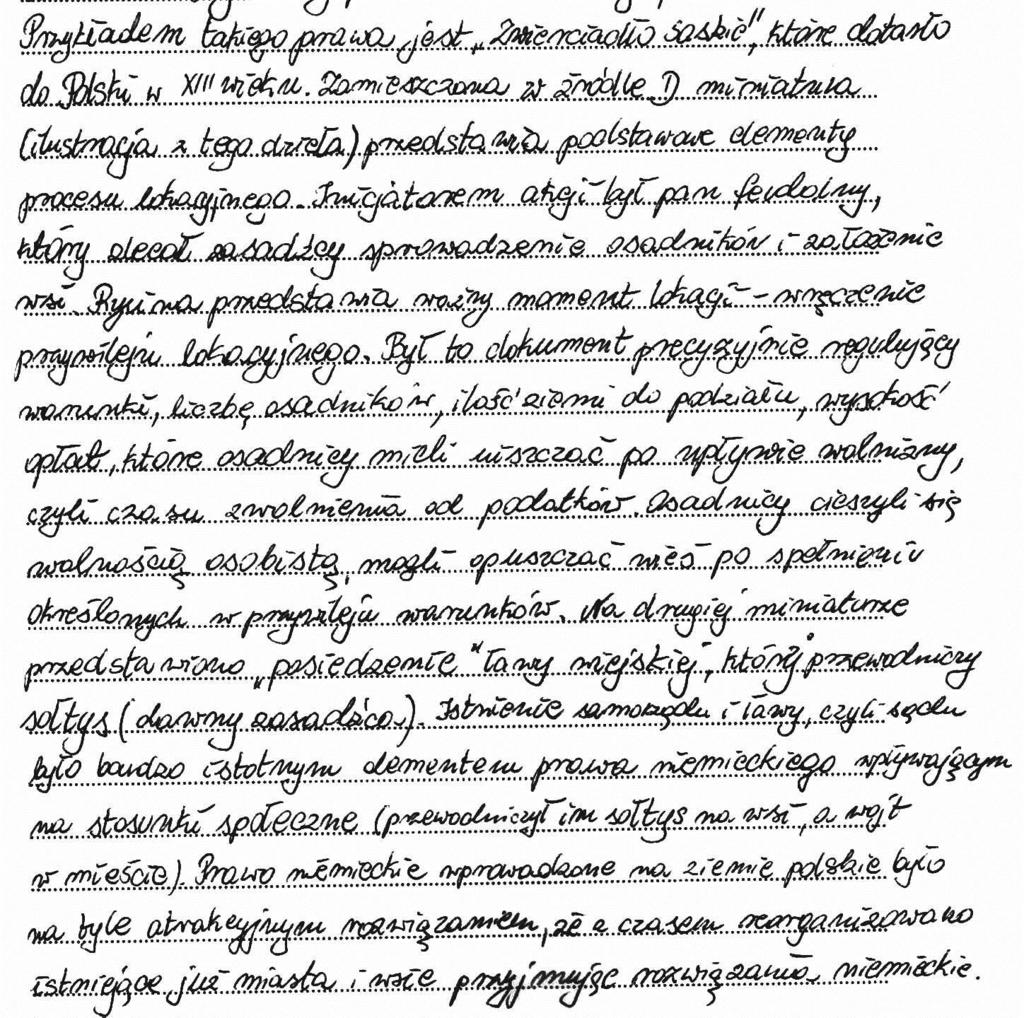 Przykładem takiego prawa jest „Zwierciadło saskie", które dotarło
do Polski w XIII wieku. Zamieszczona w źródle D miniatura
(ilustracja z tego dzieła) przedstawia podstawowe elementy
procesu lokacyjnego. Inicjatorem akcji był pan feudalny,
który zlecał zasadźcy sprowadzenie osadników i założenie
wsi. Rycina przedstawia ważny moment lokacji – wręczenie
przywileju lokacyjnego. Był to dokument precyzyjnie regulujący
warunki, liczbę osadników, ilość ziemi do podziału, wysokość
opłat, które osadnicy mieli uiszczać po upływie wolnizny,
czyli czasu zwolnienia od podatków. Osadnicy cieszyli się
wolnością osobistą, mogli opuszczać wieś po spełnieniu
określonych w przywileju warunków. Na drugiej miniaturze
przedstawiono „posiedzenie" ławy wiejskiej, której przewodniczy
sołtys (dawny zasadźca). Istnienie samorządu i ławy, czyli sądu
było bardzo istotnym elementem prawa niemieckiego wpływającym
na stosunki społeczne (przewodniczył im sołtys na wsi, a wójt
w mieście). Prawo niemieckie wprowadzone na ziemie polskie było
na tyle atrakcyjnym rozwiązaniem, że z czasem reorganizowano
istniejące już miasta i wsie przyjmując rozwiązania niemieckie.